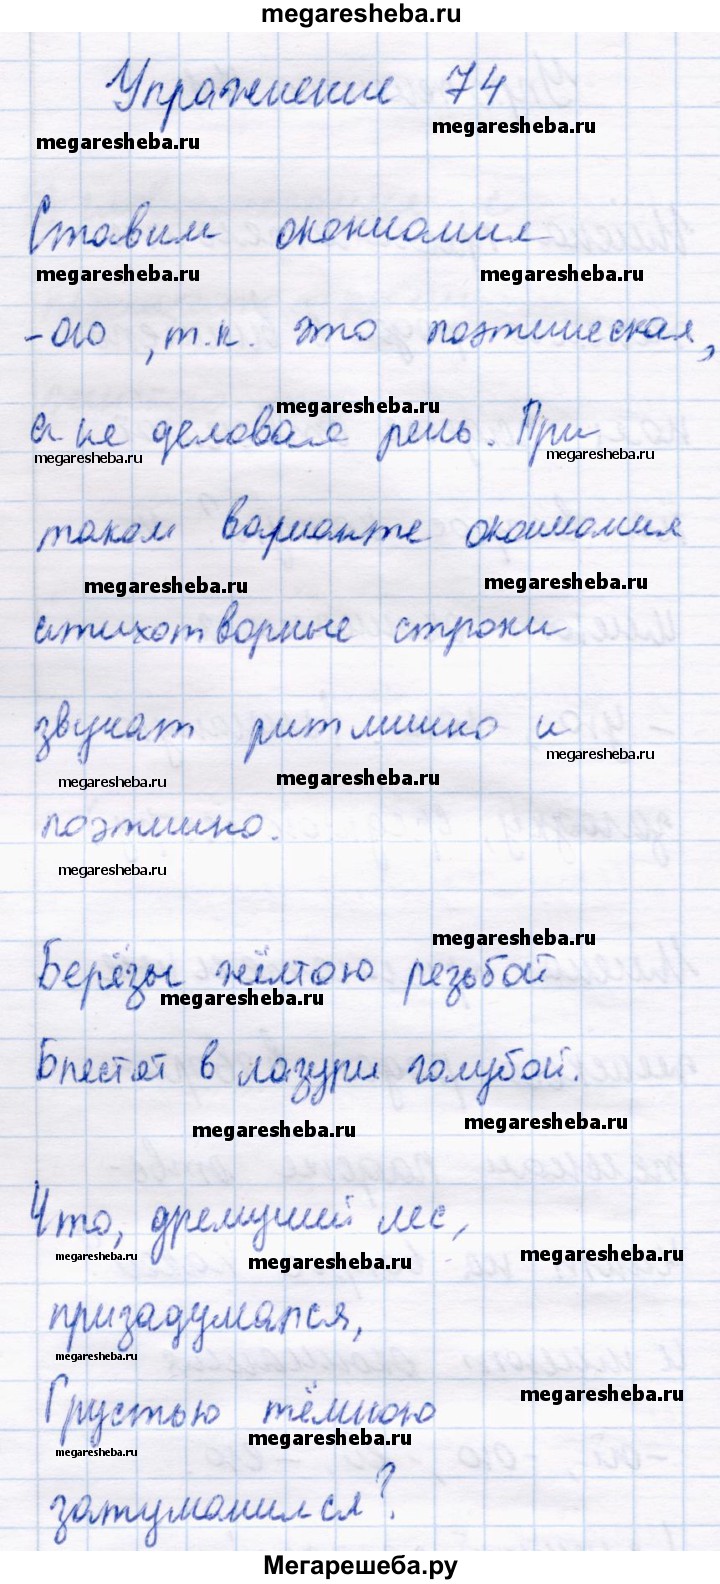 megaresheba.ru
Упражнение 74
megaresheba.ru
megaresheba.ru
Ставим окончания
megaresheba.ru
megaresheba.ru
-ою, т.к. это поэтическая,
megaresheba.ru
а не деловая речь. При
megaresheba.ru
megaresheba.ru
таком варианте окончания
megaresheba.ru
megaresheba.ru
стихотворные строки
звучат ритмично и
megaresheba.ru
megaresheba.ru
megaresheba.ru
поэтично.
megaresheba.ru
megaresheba.ru
Берёзы жёлтою резьбой
megaresheba.ru
Блестят в лазури голубой.
megaresheba.ru
megaresheba.ru
Что, дремучий лес,
megaresheba.ru
megaresheba.ru
megaresheba.ru
призадумался,
megaresheba.ru
megaresheba.ru
Грустью тёмною
megaresheba.ru
megaresheba.ru
затуманился?
Мегарешеба.ру